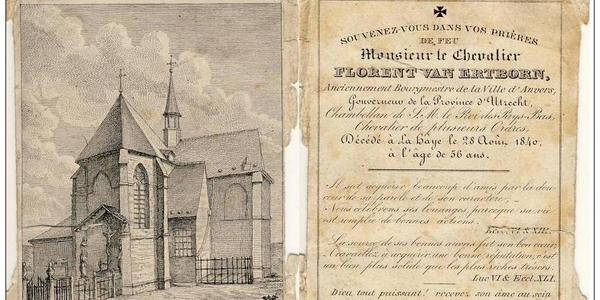 SOUVENEZ-VOUS DANS VOS PRIÈRES
DE FEU
Monsieur le Chevalier
FLORENT VAN ERTBORN,
Anciennement Bourgmestre de la Ville d'Anvers,
Gouverneur de la Province d'Utrecht,
Chambellan de S. M. le Roi des Pays-Bas,
Chevalier de plusieurs Ordres,
Décédé à La Haye le 28 Août 1840,
à l'âge de 56 ans.
Il sut acquérir beaucoup d'amis par la dou-
ceur de sa parole et de son caractère;
Nous célébrons ses louanges parceque sa vie
est remplie de bonnes actions.
Eccl. VI & XLIV.
La source de ses bonnes œuvres fut son bon cœur;
travaillez à acquérir une bonne réputation, c'est
un bien plus solide que les plus riches trésors.
Luc VI & Eccl. XLI.
Dieu tout puissant! recevez son âme au sein